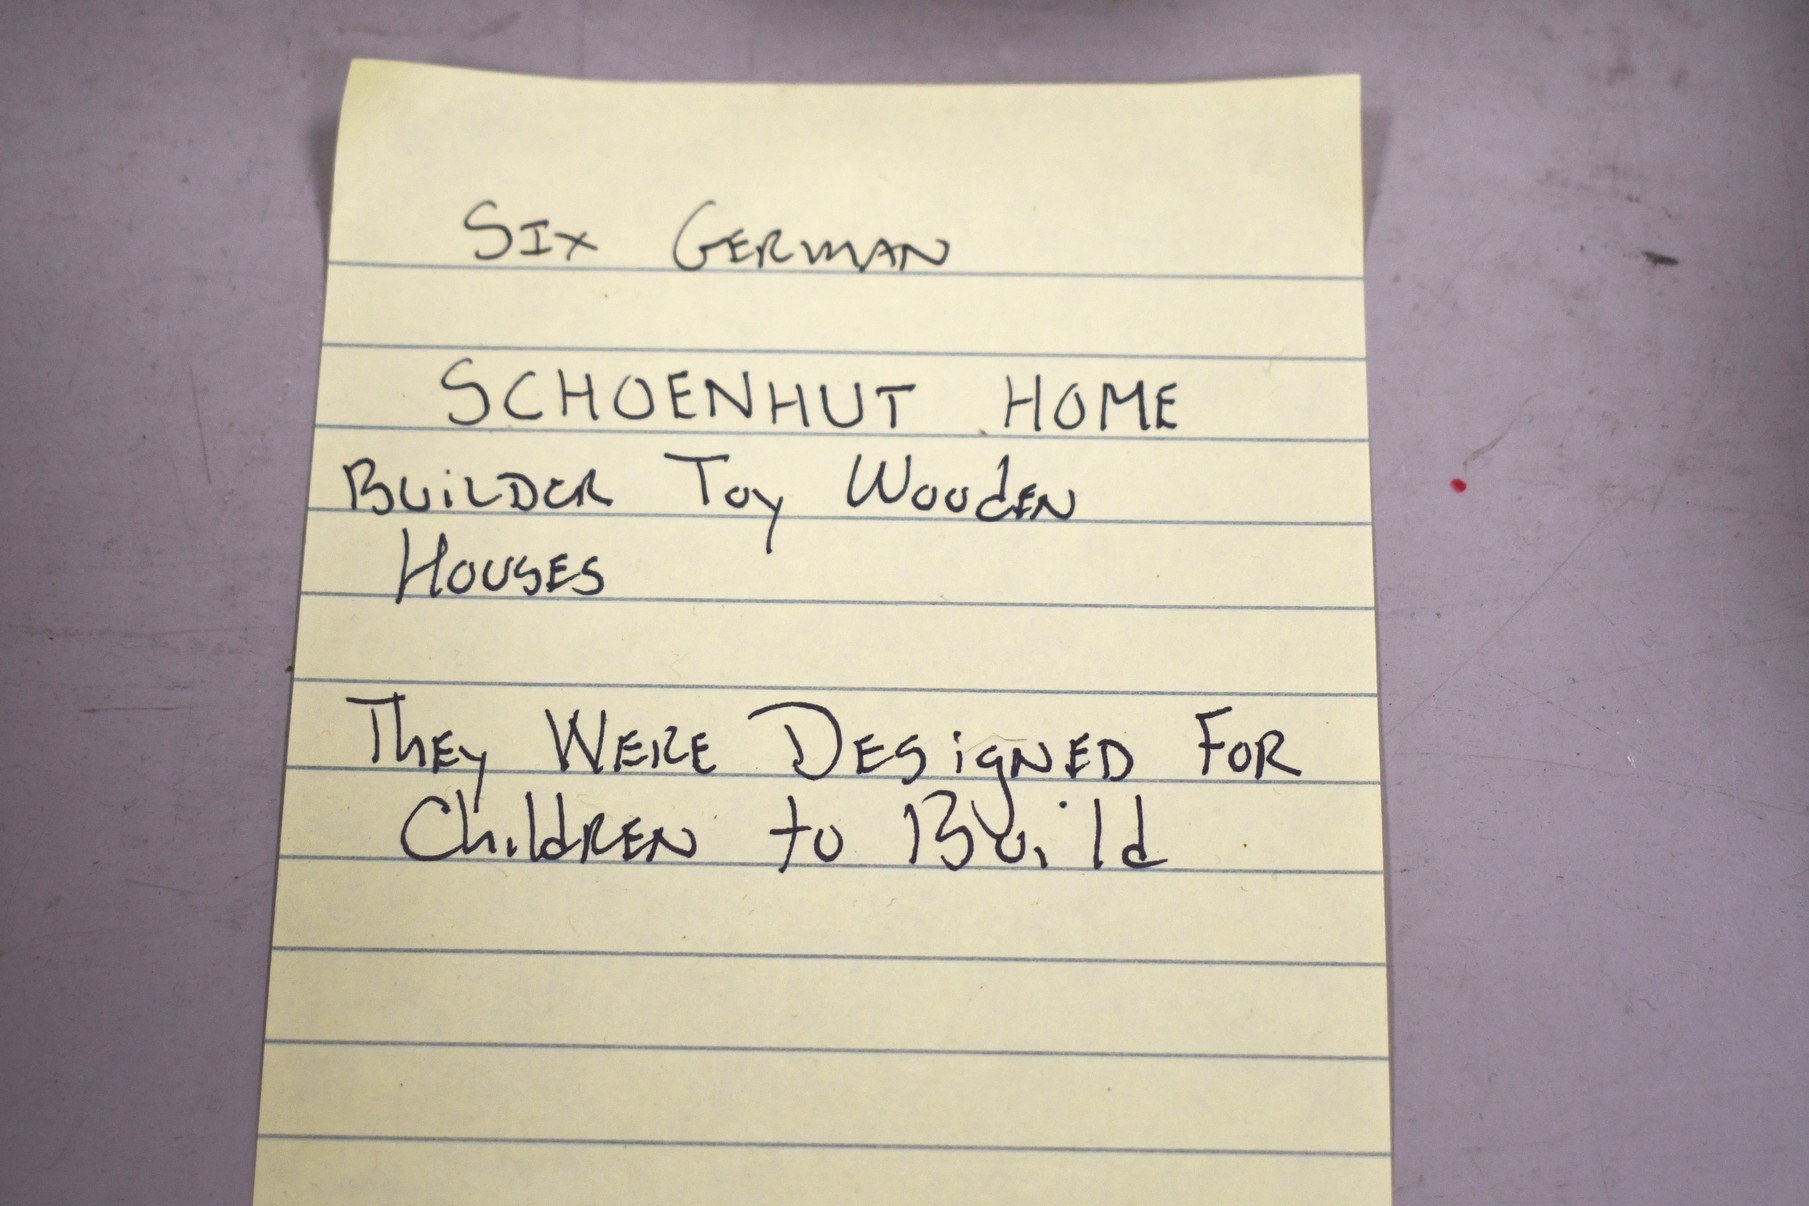 Six German
SCHOENHUT HOME
Builder Toy Wooden
Houses
They Were Designed For
Children to Build